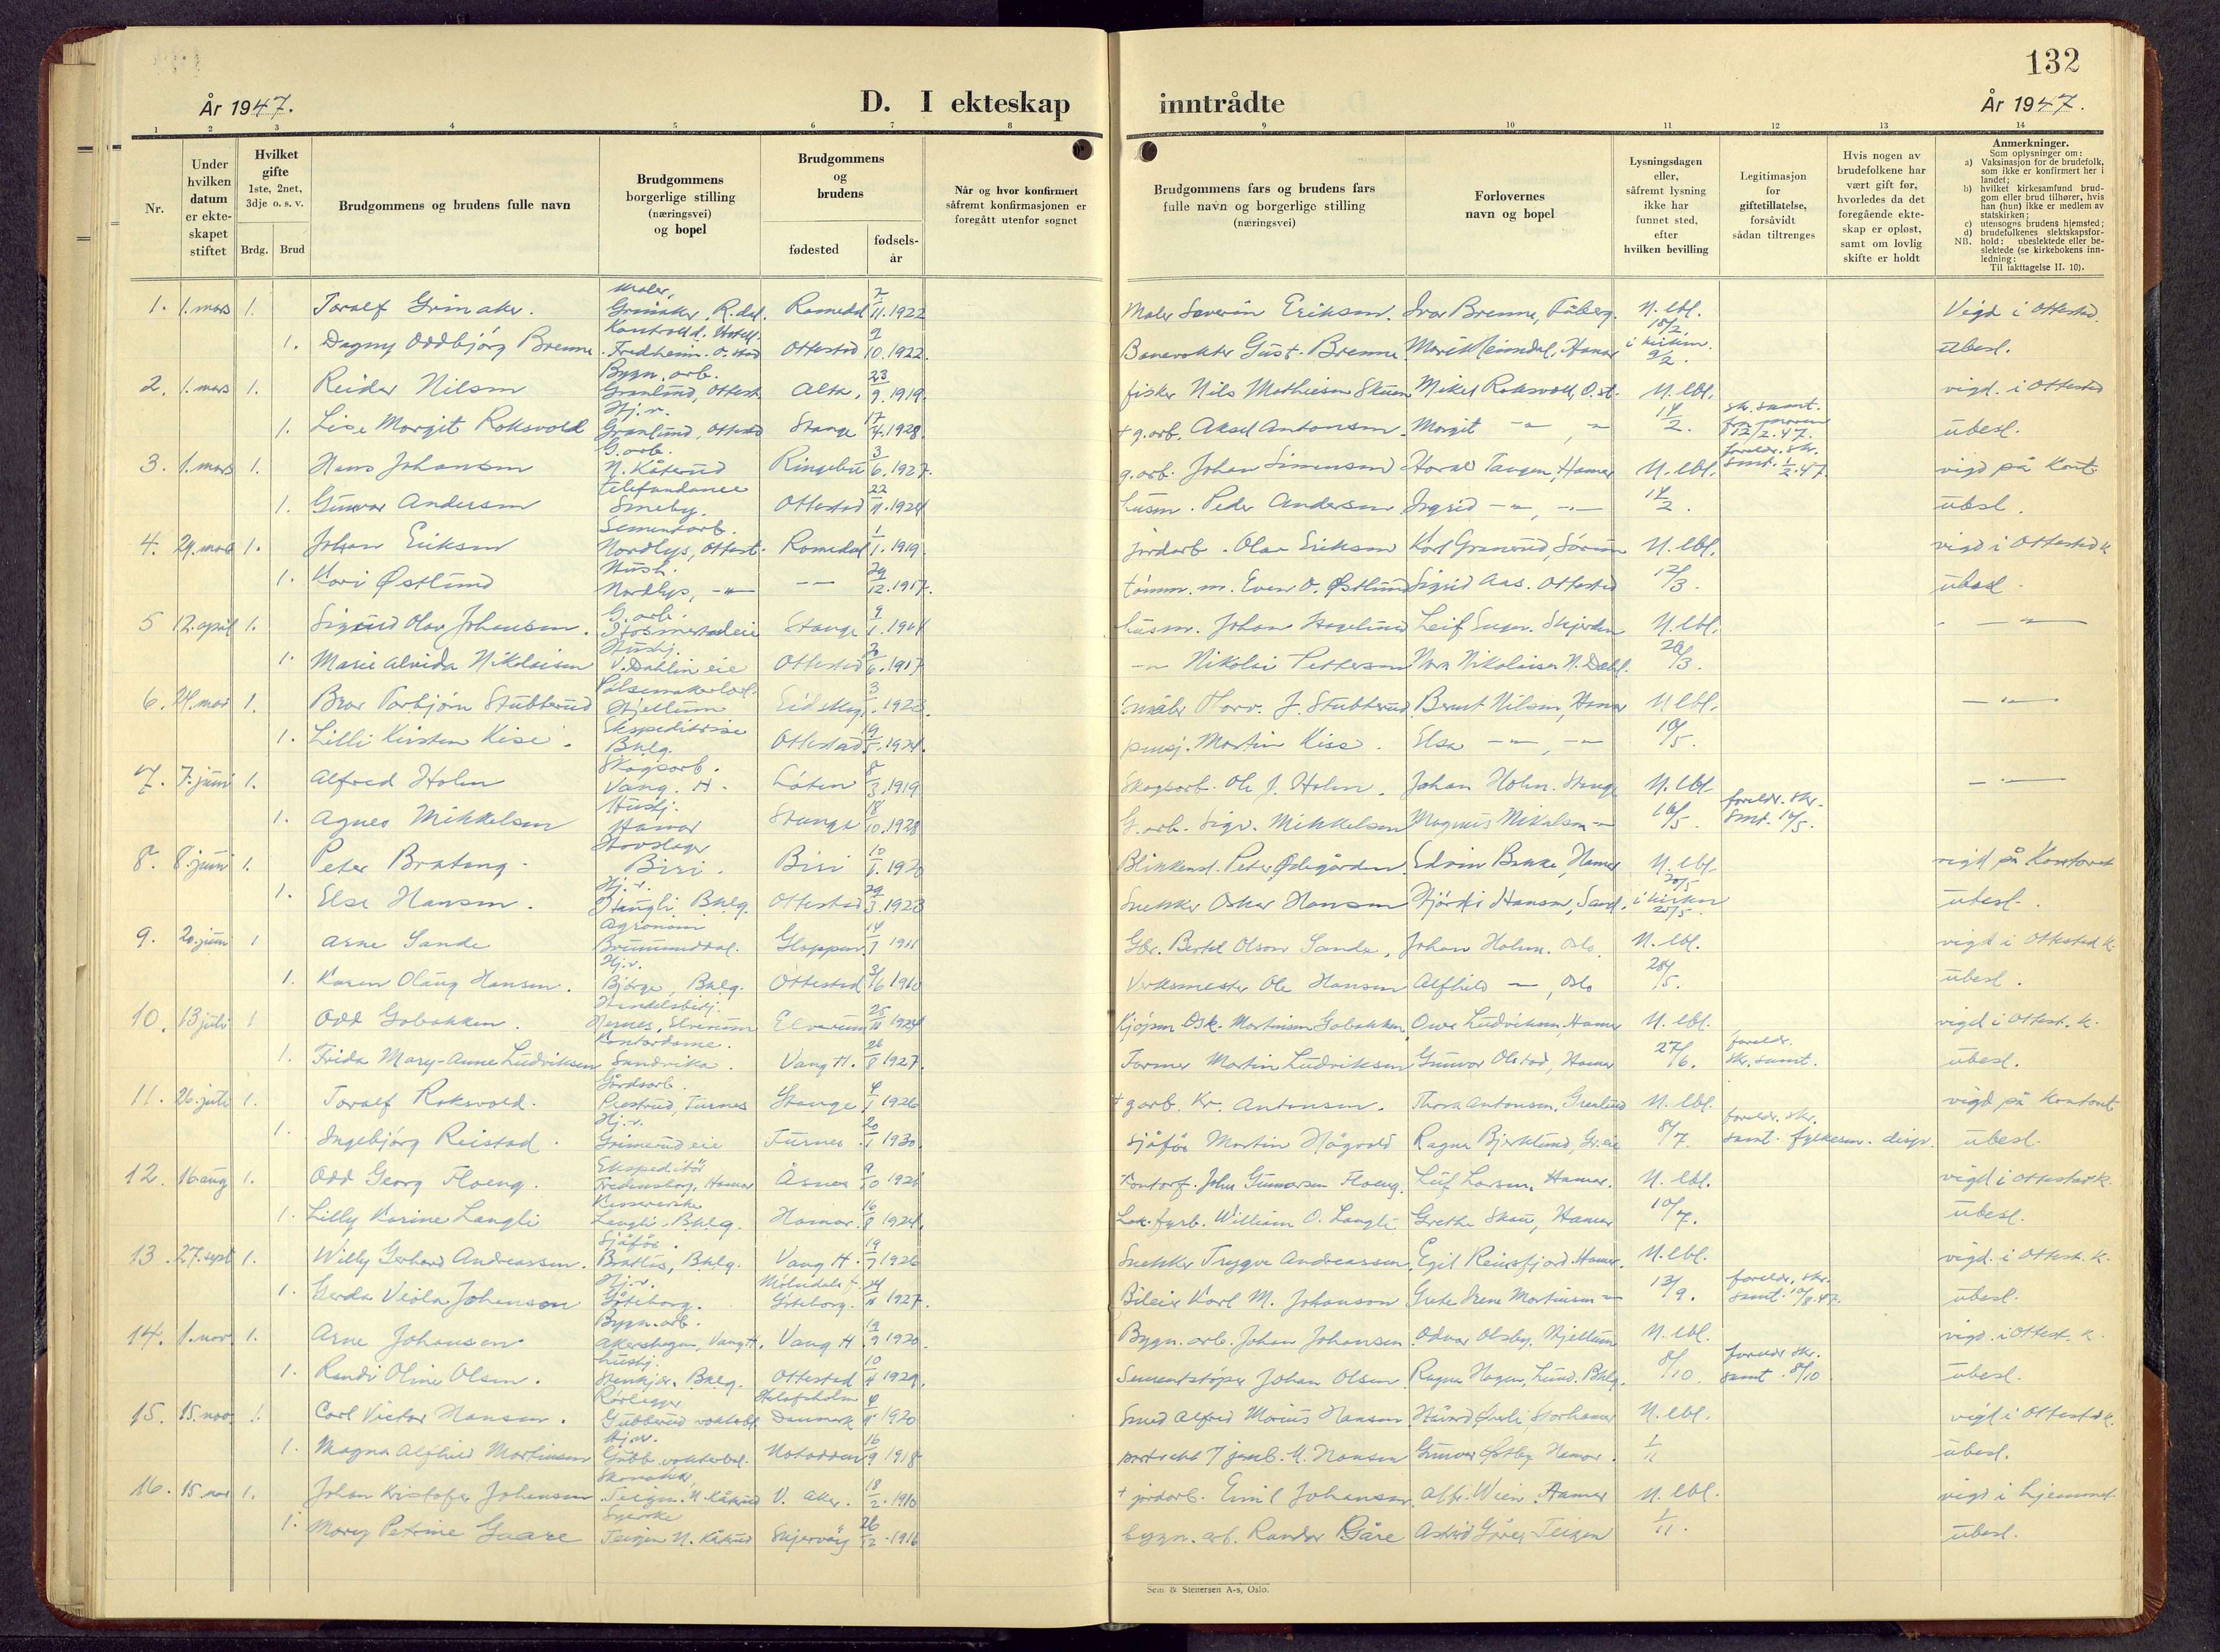 132
År 1947.
D. I ekteskap inntrådte
År 1947.
1 2 3 4 5 6 7 8 9 10 11 12 13 14
Nr.
Under hvilken datum er ekte-skapet stiftet
Hvilket gifte 1ste, 2net, 3dje o. s. v.
Brdg. Brud
Brudgommens og brudens fulle navn
Brudgommens borgerlige stilling (næringsvei) og bopel
Brudgommens og brudens
fødested
fødsels-år
Når og hvor konfirmert såfremt konfirmasjonen er foregått utenfor sognet
Brudgommens fars og brudens fars fulle navn og borgerlige stilling (næringsvei)
Forlovernes navn og bopel
Lysningsdagen eller, såfremt lysning ikke har funnet sted, efter hvilken bevilling
Legitimasjon for giftetillatelse, forsåvidt sådan tiltrenges
Hvis nogen av brudefolkene har vært gift før, hvorledes da det foregående ekte-skap er opløst, samt om lovlig skifte er holdt
Anmerkninger.
Som oplysninger om:
a) Vaksinasjon for de brudefolk, som ikke er konfirmert her i landet;
b) hvilket kirkesamfund brud-gom eller brud tilhører, hvis han (hun) ikke er medlem av statskirken;
c) utensogns brudens hjemsted;
d) brudefolkenes slektskapsfor-hold: ubeslektede eller be-slektede (se kirkebokens inn-ledning:
NB.
Til iakttagelse II. 10).
1. 1. mars 1. Toralf Grimaker. Maler, Grimaker, R.dal. Romedal 2/11.1922 Maler Severin Eriksen. Ivar Brenne, Fåberg. N. lbl. 18/2. Vigd i Ottestad.
1. Dagny Oddbjörg Brenne Fredheim. O.stad Ottestad 9/10.1922. Banevokter Gust. Brenne Hamar i kirken 9/2. übesl.
2. 1. mars 1. Reidar Nilsen Bygn. arb. Granlund, Ottest. Alta. 23/9.1919. fisker Nils Mathiesen Mikel Roksvold, O.st. N. lbl. vigd. i Ottestad
1. Lise Margit Roksvold Hj. v. Granlund, Ottestad Stange 17/4.1928. + g.arb. Aksel Antonsen. Margit -"- , -"- 14/2. skr. samt. fra moren 12/2.47. übesl.
3. 1. mars 1. Hans Johansen G. arb. N. Kåterud Ringebu 3/6.1927. g.arb. Johan Simensen Harald Tangen, Hamar N. lbl. foreldr. skr. smt. 1/2.47. vigd på kont.
1. Gunvor Andersen telefondame Smeby. Ottestad 22/11.1924 husm. Peder Andersen Ingrid -"-, -"- 14/2. übesl.
4. 29. mars 1. Johan Eriksen Sementarb. Nordlys, Ottest. Romedal 1/1.1919. jordarb. Olav Eriksen Karl Granerud, N. lbl. vigd i Ottestad k.
1. Kari Østlund Hush. Nordlys, -"- -"- 29/12.1917. tömm. m. Even O. Østlund Sigrid Aas. Ottestad 12/3. übesl.
5 12. april 1. Sigurd Olav Johansen. G. arb. Stange husm. Johan Hagelund Leif N. lbl. - -"-
1. Marie Alvida Nikolaisen Hushj. V. Dahlin eie Ottestad 6.1917 -"- Nikolai Pettersen Nora Nikolaisen N. Dahl. 20/3.
6. 24. mai 1. Bror Torbjørn Stubberud Pölsemakerlærl. Hjellum Eidskog 3/1.1923. Småbr. Torv. J. Stubberud Bernt Nilsen, Hamar N. lbl. -"-
1. Lilli Kirsten Kise. Ekspeditrise Bklg. Ottestad 19/5.1924. pensj. Martin Kise. Elsa -"-, -"- 10/5.
7. 7. juni 1. Alfred Holm Skogsarb. Vang. H. Löten 8/3.1919 Skogsarb. Ole J. Holm. Johan Holm. Stange N. lbl -"-
1. Agnes Mikkelsen Hushj. Hamar Stange 18/10.1928 G. arb. Sigv. Mikkelsen Magnus Mikalsen -"- 16/5. foreldr. skr. smt. 16/5.
8. 8. juni 1. Peter Brateng. Hovslager Biri. Biri 10/1.1920 Blikkensl. Peter Ødegården. Edvin Hamar N. lbl. 20/5 vigd på kontoret
1. Else Hansen. Hj. v. Haugli Bklg. Ottestad 29/3.1923 Snekker Oskar Hansen Hjördis Hansen, i kirken 25/5. übesl.
9. 20. juni 1 Arne Sande Agronom Brumunddal. Gloppen. 14/7 1911 Gbr. Bertel Olsen Sande, Johan Holm. Oslo. N. lbl. vigd i Ottestad k.
1. Karen Olaug Hansen. Hj. v. Björge, Bklg. Ottestad 3/6 1910 Verksmester Ole Hansen Alfhild -"-, Oslo 28/5. übesl.
10. 13 juli 1 Odd Gobakken. Handelsbetj. Hernes, Elverum Elverum 25/11 1924 Kjöpm. Osk. Martinsen Gobakken, Owe Ludviksen, Hamar N. lbl. vigd i Ottest. k.
1. Frida Mary-Anne Ludviksen Kontordame. Sandvika. Vang H. 26/8 1927. Former Martin Ludviksen Gunvor Olstad, Hamar 27/6. foreldr. skr. samt. übesl.
11. 26. juli 1. Toralf Roksvold. Gårdsarb. Prestrud, Furnes Stange 4/1 1926 + g.arb. Kr. Antonsen. Thora Antonsen, Granlund N. lbl. vigd på kontoret
1. Ingebjörg Reistad. Hj. v. Grimerud eie Furnes 20/1 1930. Sjåför Martin Högvold Ragna Bjørklund, Gr. eie 8/7. foreldr. skr. samt. fylkesm. disp. übesl.
12. 16 aug 1. Odd Georg Floeng. Ekspeditör Fredensborg, Hamar Åsnes 9/10 1921 Kontorf. John Gunnarsen Floeng. Leif Larsen. Hamar. N. lbl. vigd i Ottestad k.
1. Lilly Karine Langli Kassererske Langli. Bklg. Hamar. 16/8 1924. Lok. fyrb. William O. Langli Grethe Skau, Hamar 10/7. übesl.
13. 27. sept 1. Willy Gerhard Andreassen. Sjåför. Brattlis, Bklg. Vang H. 19/7 1926 Snekker Trygve Andreassen. Egil Reinsfjord. Hamar. N. lbl. vigd. i Ottest. k.
1. Gerda Viola Johanson Hj. v. Göteborg. Mölndals f. Göteborg. 24/11 1927. Bileier Karl M. Johanson Grete Irene Martinsen -"- 13/9. foreldr. skr. samt. 10/8.47. übesl.
14. 1. nov. 1. Arne Johansen Bygn. arb. Akershagan, Vang H. Vang H. 19/9 1920. Bygn. arb. Johan Johansen Odvar Olsby. Hjellum N. lbl. vigd. i Ottest. k.
1. Randi Oline Olsen. hushj. Stenkjer. Bklg. Ottestad 10/4 1929. Sementstöper Johan Olsen Ragna Hagen, Lund. Bklg. 8/10. foreldr. skr. samt. 8/10 übesl.
15. 15. nov. 1. Carl Victor Hansen. Rørlegger Gubberud vokterbol Danmark 1920 Smed Alfred Marius Hansen Håvard Storhamar N. lbl. vigd i Ottestad k.
1. Magna Alfhild Martinsen Hj. v. Gubb. vokterbol. Notodden 16/9 1918. 7 M. Hansen Gunvor Østby Hamar. 1/11 übesl.
16. 15. nov. 1. Johan Kristofer Johansen Skomaker, Teigen. N. Kåterud V. Aker. 18/2. 1910 + jordarb. Emil Johansen Alfr. Wien. Hamar N. lbl. vigd i hjemmet
1. Mary Petrine Gaare Syerske Teigen N. Kåterud Skjervöy 26/12 1916 bygn. arb. Randor Gåre Astrid Gåre, Teigen 1/11. übesl.
Sem & Stenersen A-s, Oslo.